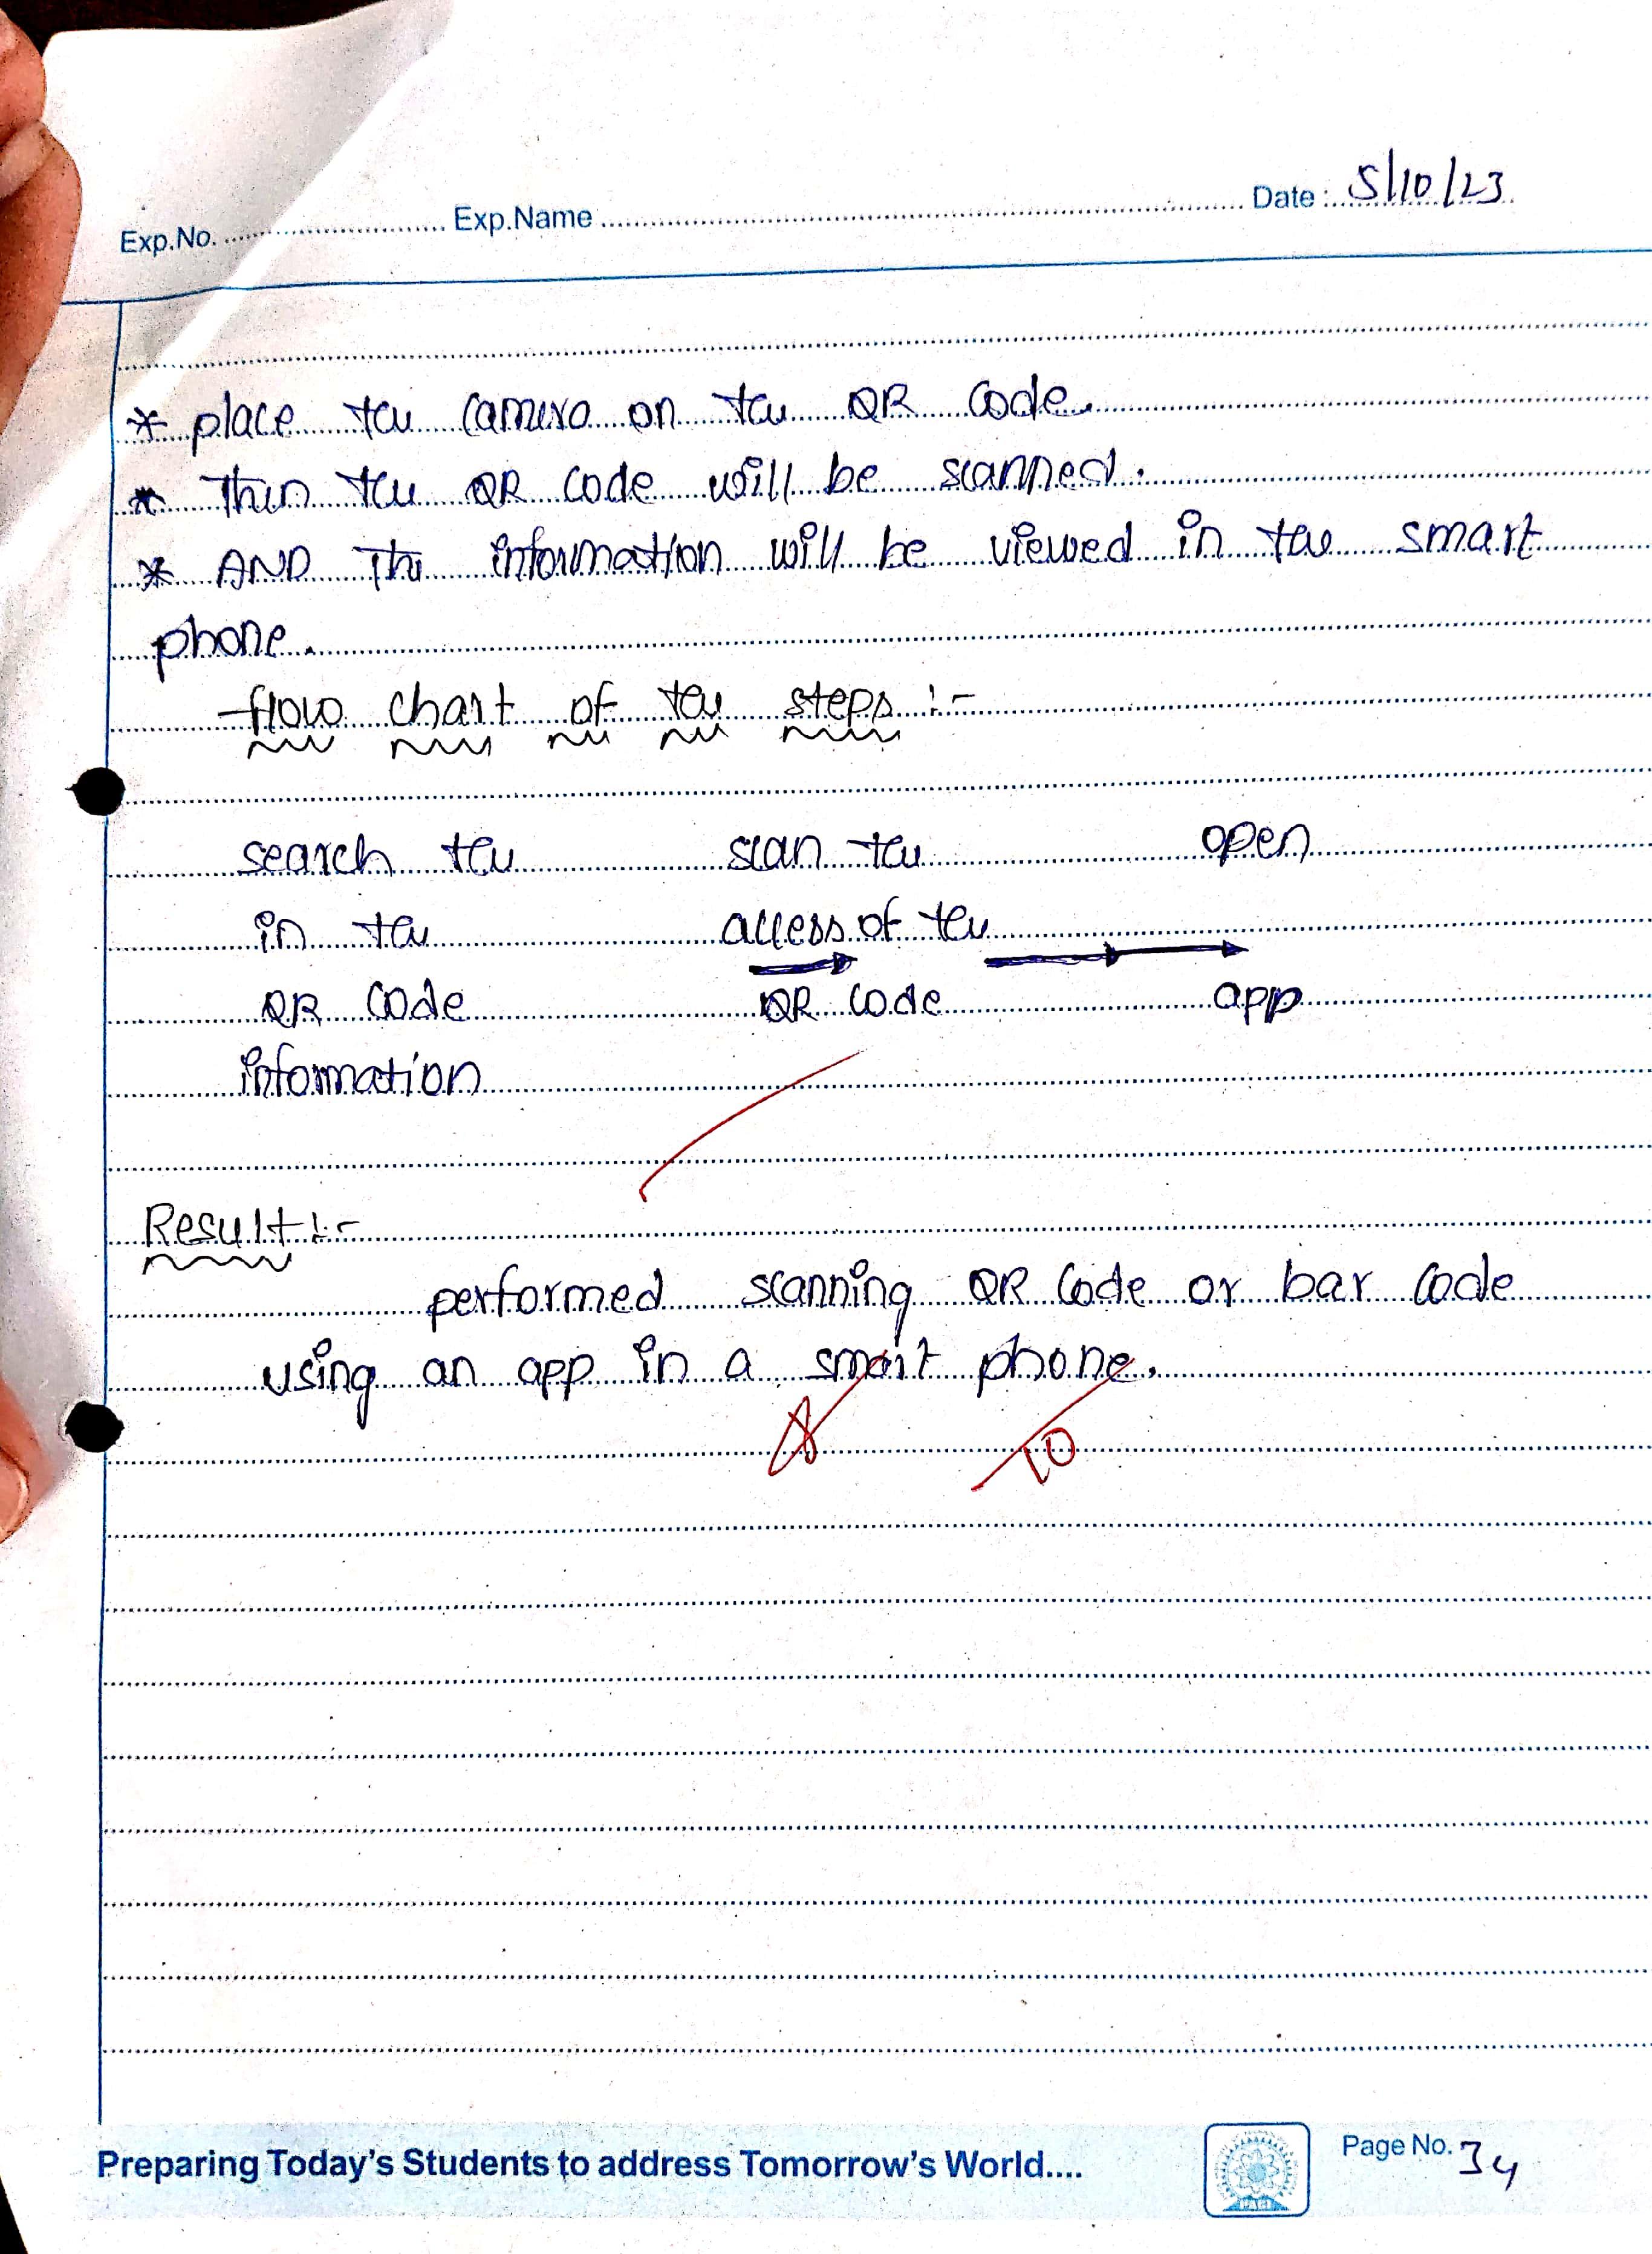 Exp.No. Exp.Name Date : 5/10/23
* place the camera on the QR code.
* Then the QR code will be scanned.
* AND The information will be viewed in the smart
phone.
flow chart of the steps :-
search the scan the open
in the access of the
QR code QR code app
information
Result :-
performed scanning QR code or bar code
using an app in a smart phone.
8 10
Preparing Today's Students to address Tomorrow's World....
Page No. 34